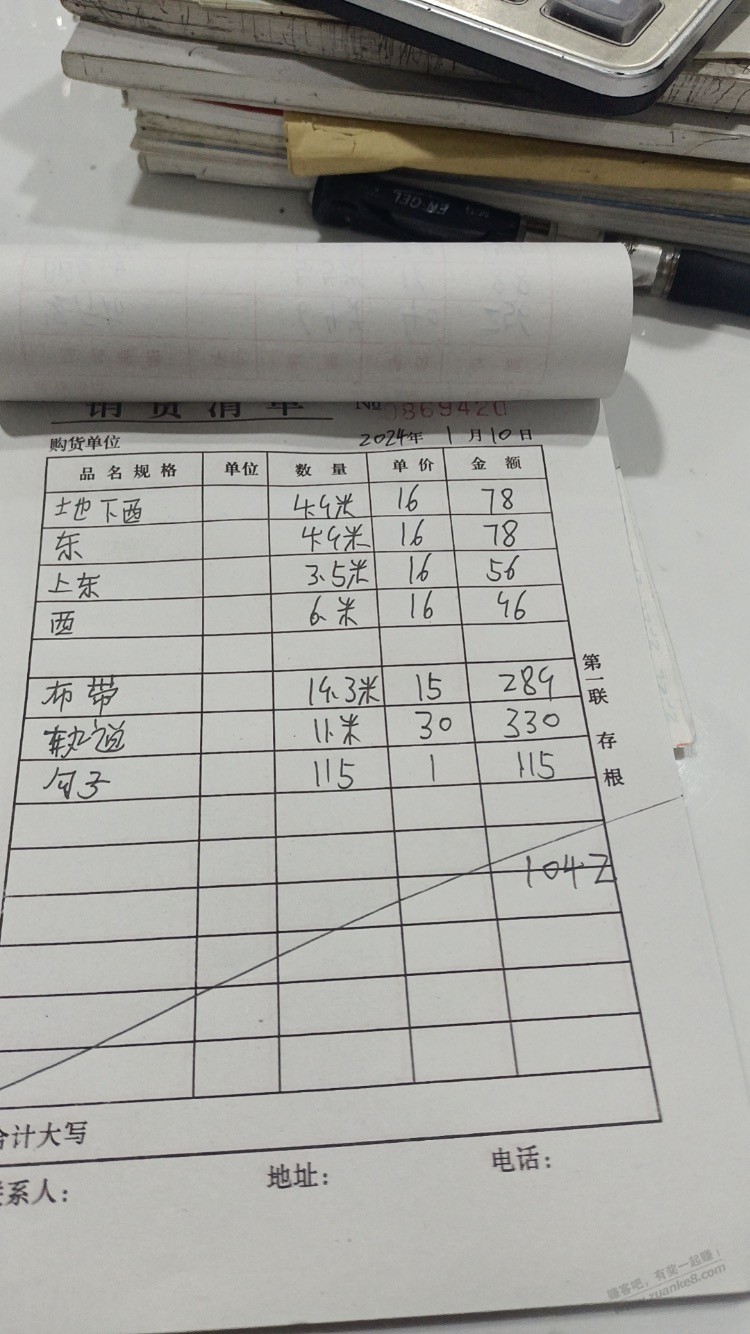 销货清单 №0869420
购货单位 2024年 1月10日
品名规格 单位 数量 单价 金额
地下西 4.9米 16 78
东 4.9米 16 78
上东 3.5米 16 56
西 6.米 16 96
布带 19.3米 15 289
轨道 11.米 30 330
勾子 115 1 115
1042
第一联 存根
合计大写
联系人： 地址： 电话：
ER-GEL
赚客吧，有奖一起赚！
www.zuanke8.com